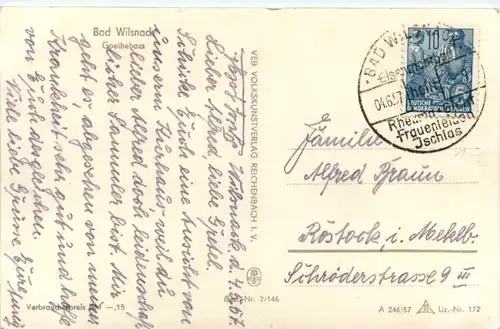 Bad Wilsnack
Goethehaus
Bad Wilsnack d. 4.6.57
Lieber Alfred, liebe Gretel.
Schicke Euch eine Ansicht von
unserm Kurhaus weil du
lieber Alfred doch leidenschaft-
licher Sammler bist. Mir
geht es, abgesehen von meiner
Krankheit sehr gut und hoffe
von Euch dasgleiche.
Viele liebe Grüsse Eure
Verbraucherpreis DM -,15
VEB VOLKSKUNSTVERLAG REICHENBACH I. V.
Best-Nr. 2/146
BAD WILSNACK
04.6.57
Eisenmoorbad
Rheuma
Frauenleiden
Ischias
10
DEUTSCHE
DEMOKRATISCHE REPUBLIK
Familie
Alfred Braun
Rostock i. Meklb.
Schröderstrasse 9 III
A 246/57 Liz.-Nr. 172